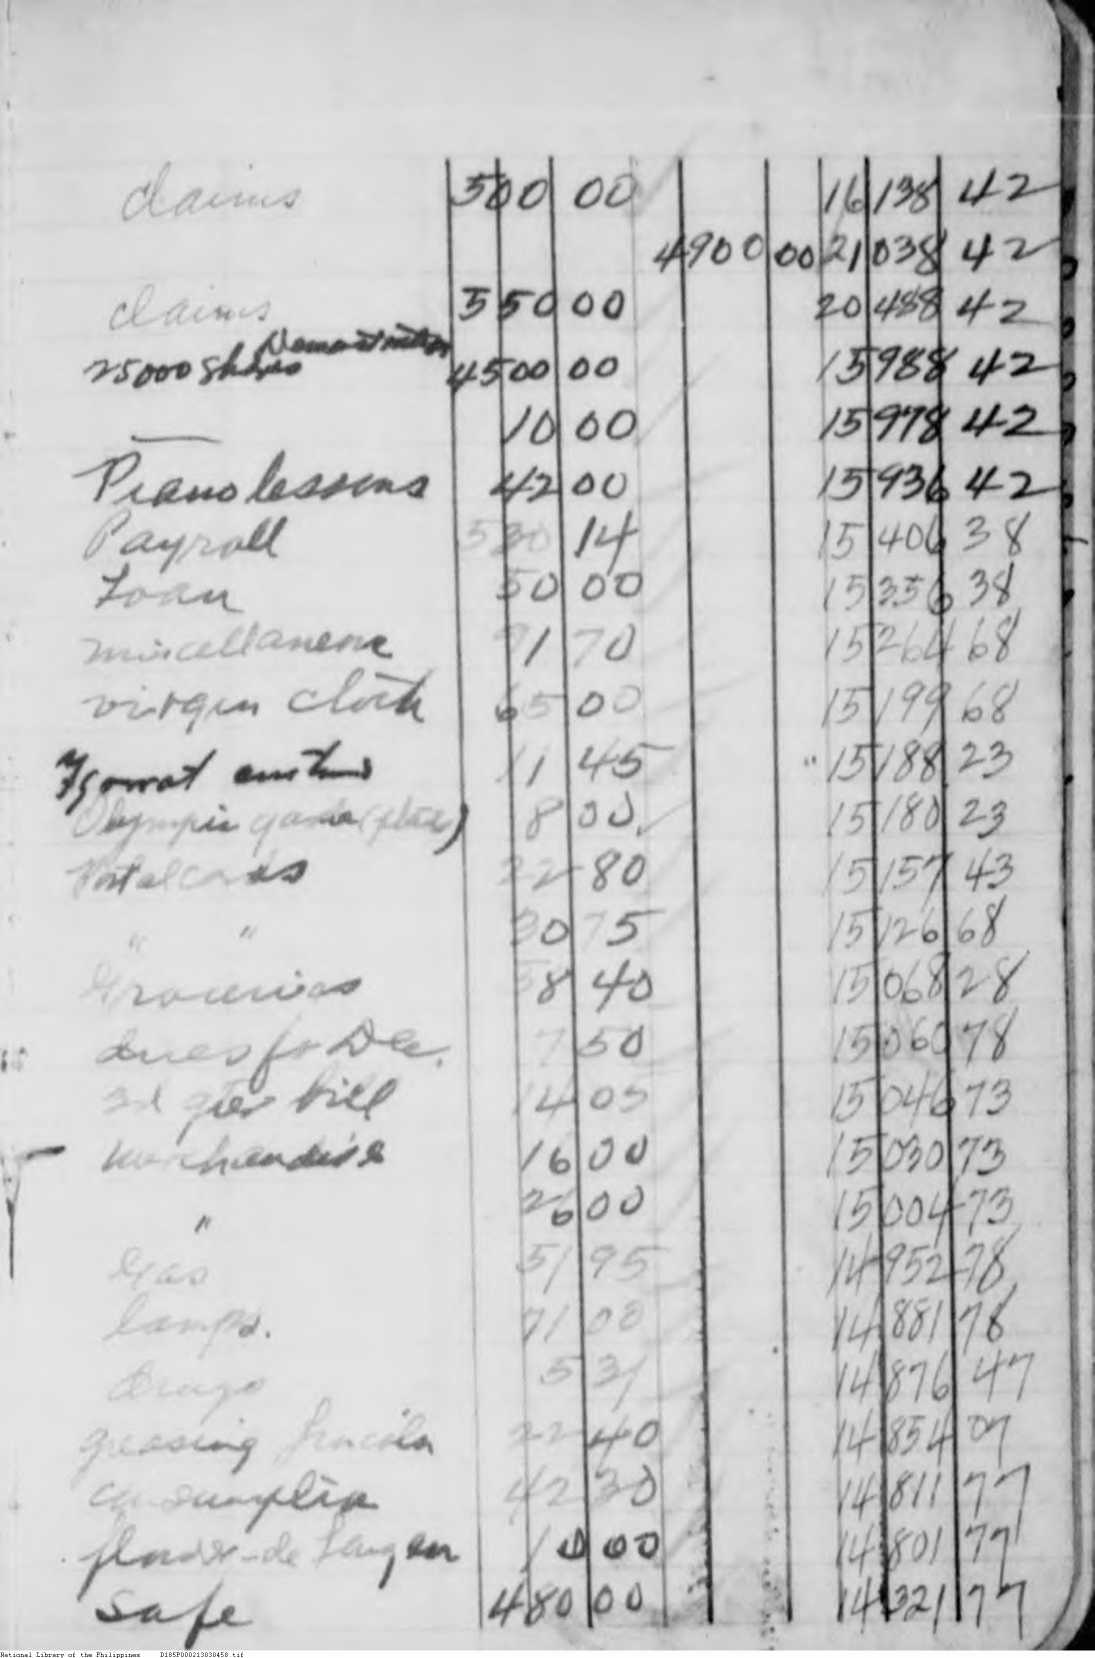 claims 500 00 16 138 42
4900 00 21 038 42
claims 550 00 20 488 42
Demonstration
25000 shares 4500 00 15 988 42
10 00 15 978 42
Piano lessons 42 00 15 936 42
Payroll 530 14 15 406 38
Loan 50 00 15 356 38
miscellaneous 91 70 15 264 68
virgin cloth 65 00 15 199 68
Igorrot 11 45 15 188 23
Olympic game (plate) 8 00 15 180 23
Postalcards 22 80 15 157 43
" " 30 75 15 126 68
Groceries 58 40 15 068 28
dues 7 50 15 060 78
bill 14 05 15 046 73
merchandise 16 00 15 030 73
" 26 00 15 004 73
Gas 51 95 14 952 78
lamps. 71 00 14 881 78
Drugs 5 31 14 876 47
greasing Lincoln 22 40 14 854 07
consumption 42 30 14 811 77
10 00 14 801 77
safe 480 00 14 321 77
National Library of the Philippines D185P000213030458.tif